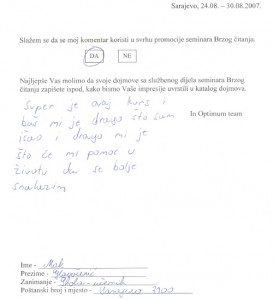 Sarajevo, 24.08. – 30.08.2007.
Slažem se da se moj komentar koristi u svrhu promocije seminara Brzog čitanja.
DA NE
Najljepše Vas molimo da svoje dojmove sa službenog dijela seminara Brzog
čitanja zapišete ispod, kako bismo Vaše impresije uvrstili u katalog dojmova.
In Optimum team
Super je ovaj kurs i
baš mi je drago što sam
išao i drago mi je
što će mi pomoć u
životu da se bolje
snalazim
Ime - Mak
Prezime -
Zanimanje - učenik
Poštanski broj i mjesto - Sarajevo 7100